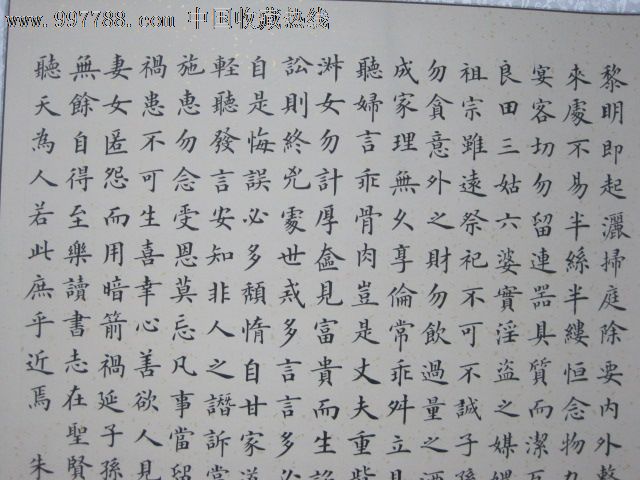 www.997788.com 中国收藏热线
黎明即起灑掃庭除要內外整
來處不易半絲半縷恒念物力
宴客切勿留連器具質而潔瓦
良田三姑六婆實淫盜之媒
祖宗雖遠祭祀不可不誠子孫
勿貪意外之財勿飲過量之酒
成家理無久享倫常乖舛立見
聽婦言乖骨肉豈是丈夫重貲
淑女勿計厚奩見富貴而生諂
訟則終兇處世戒多言言多必
自是悔誤必多頹惰自甘家道
輕聽發言安知非人之譖訴當
施惠勿念受恩莫忘凡事當留
禍患不可生喜幸心善欲人見
妻女匿怨而用暗箭禍延子孫
無餘自得至樂讀書志在聖賢
聽天為人若此庶乎近焉 朱